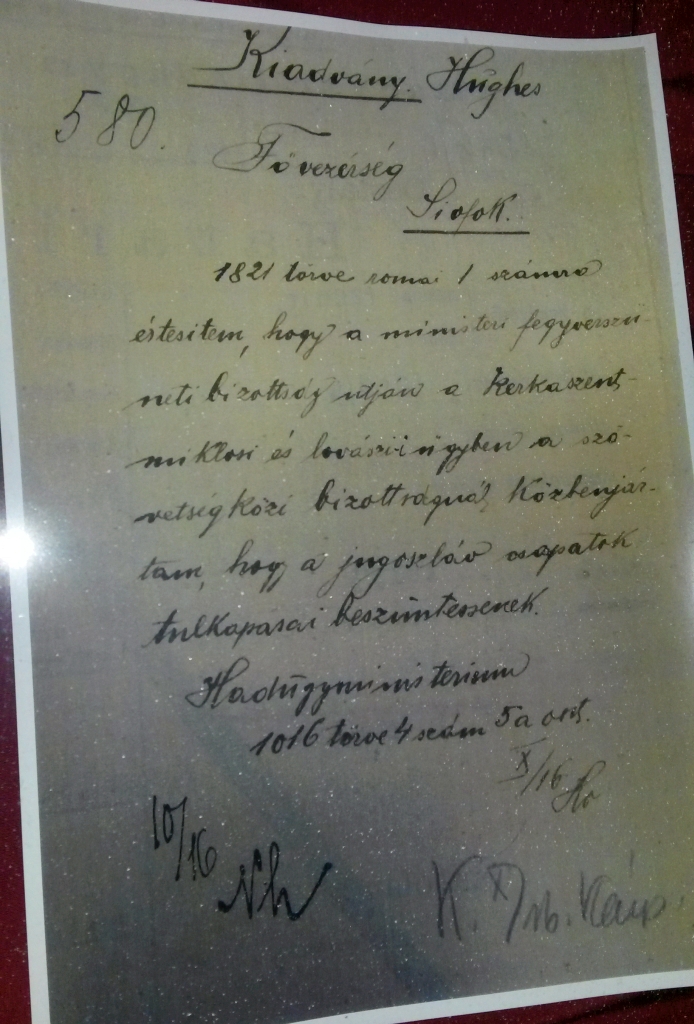 Kiadvány. Hughes
580.
Fövezérség
Siofok.
1821 törve romai 1 számra
értesitem, hogy a ministeri fegyverszü-
neti bizottság utján a Kerkaszent-
miklosi és lovászi-i ügyben a szö-
vetségközi bizottságnál közbenjár-
tam, hogy a jugoszláv csapatok
tulkapásai beszüntessenek.
Hadügyministerium
1016 törve 4 szám 5 a oszt.
X/16
10/16
K. X